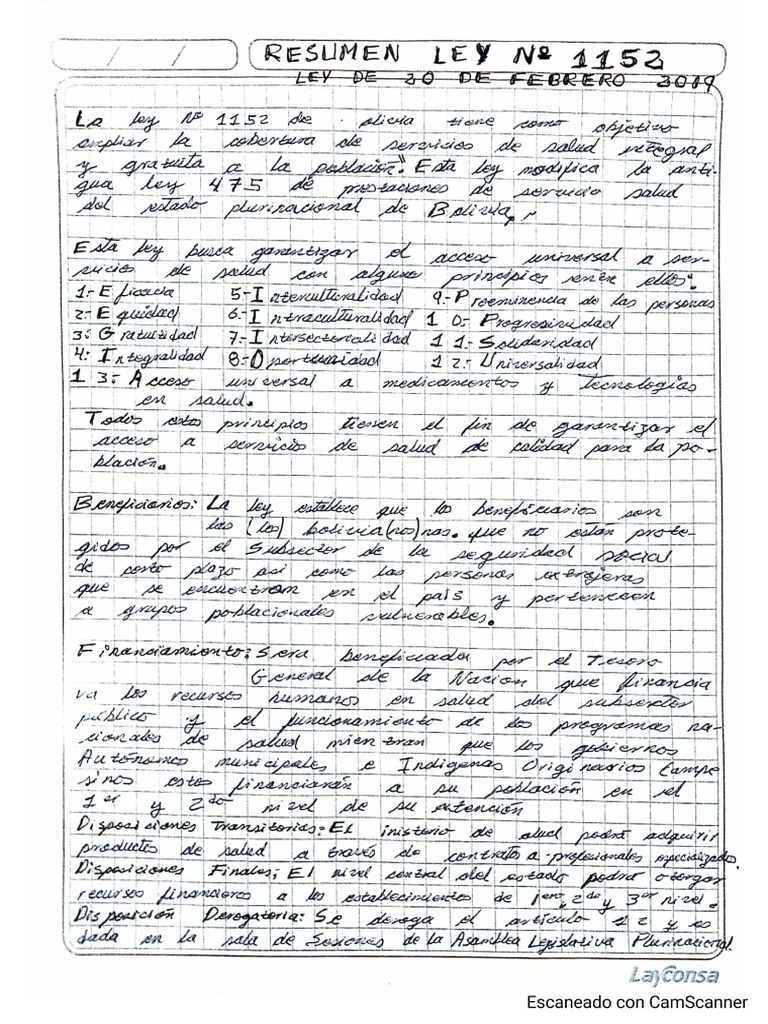 / /
RESUMEN LEY Nº 1152
LEY DE 20 DE FEBRERO 2019
La ley Nº 1152 de olivia tiene como objetivo
ampliar la cobertura de servicios de salud integral
y gratuita a la población". Esta ley modifica la anti-
gua ley 475 de prestaciones de servicio salud
del estado plurinacional de Bolivia.
Esta ley busca garantizar el acceso universal a ser-
vicios de salud con alguno principios entre ellos:
1.- Eficacia 5.- Interculturalidad 9.- Preeminencia de las personas
2.- Equidad 6.- Intraculturalidad 10.- Progresividad
3.- Gratuitidad 7.- Intersectorialidad 11.- Solidaridad
4.- Integralidad 8.- Oportunidad 12.- Universalidad
13.- Acceso universal a medicamentos y tecnologías
en salud.
Todos estos principios tienen el fin de garantizar el
acceso a servicios de salud de calidad para la po-
blación.
Beneficiarios: La ley establece que lo beneficiarios son
las (los) bolivia(nos)nas. que no están prote-
gidos por el Subsector de la seguridad social
de corto plazo asi como las personas extrejeras
que se encuentran en el país y pertenecen
a grupos poblacionales vulnerables.
Financiamiento: Sera beneficiada por el Tesoro
General de la Nacion que financia
va los recursos humanos en salud del subsector
público y el funcionamiento de los programas na-
cionales de salud mientran que los gobiernos
Autónomos municipales e Indigenas Originarios Campe
sinos estos financiarán a su población en el
1er y 2do nivel de su atención
Disposiciones Transitorias: El inisterio de alud podrá adquirir
productos de salud a través de contratos a profesionales especializado.
Disposiciones Finales; El nivel central del estado podrá otorgar
recursos financieros a los establecimientos de 1ero, 2do y 3er nivel.
Disposición Derogatoria: Se deroga el artículo 12 y es
dada en la sala de Sesiones de la Asamblea Legislativa Plurinacional.
Layconsa
Escaneado con CamScanner